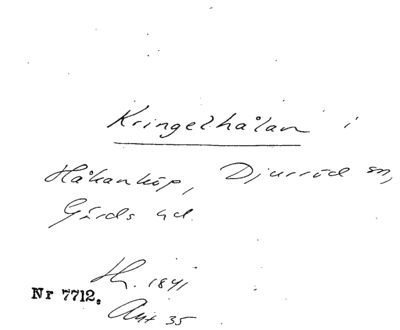 Kringelhålan i
Håkanköp, Djurröd sn,
Gärds hd.
H. 1841
Nr 7712.
Akt 35